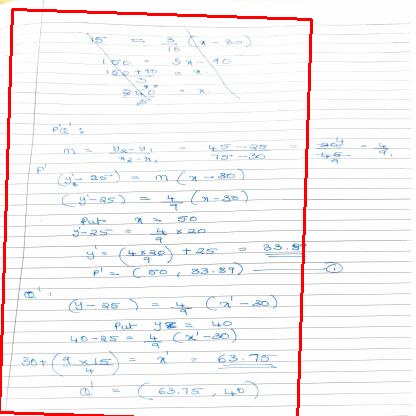 15 = 3/10 (x - 30)
150 = 3x - 90
150 + 90 / 3 = x.
= x.
P'Q':
m = y₂ - y₁ / x₂ - x₁ = 45 - 25 / 75 - 30 = 20 / 45 = 4/9.
P'
(y' - 25) = m (x - 30)
(y' - 25) = 4/9 (x - 30)
Put x = 50
y' - 25 = 4/9 × 20
y' = (4×20 / 9) + 25 = 33.8
P' = (50, 33.89) ——— ①
Q':
(y - 25) = 4/9 (x' - 30)
Put y = 40
40 - 25 = 4/9 (x' - 30)
30 + (9 × 15 / 4) = x' = 63.75
Q' = (63.75, 40)